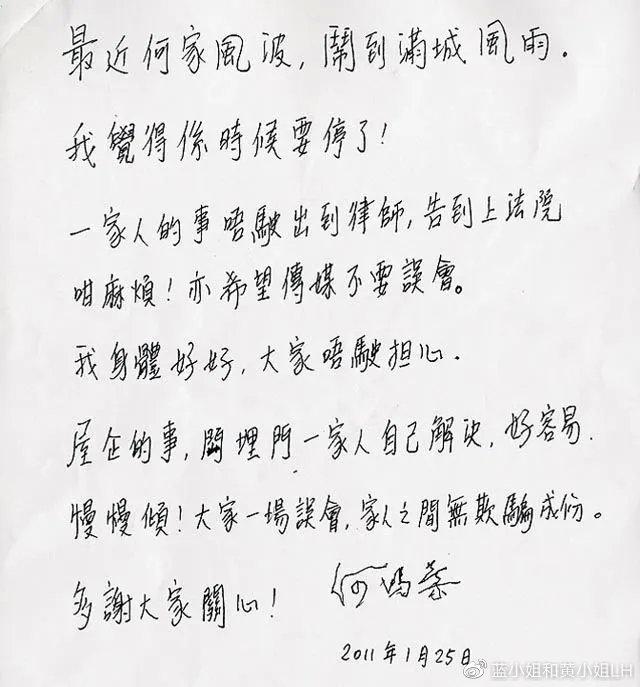 最近何家風波，鬧到滿城風雨．
我覺得係時候要停了！
一家人的事唔駛出到律師，告到上法院
咁麻煩！亦希望傳媒不要誤會。
我身體好好，大家唔駛担心．
屋企的事，閂埋門一家人自己解决，好容易．
慢慢傾！大家一場誤會，家人之間無欺騙成份。
多謝大家關心！
何鴻燊
2011年1月25日
蓝小姐和黄小姐LH